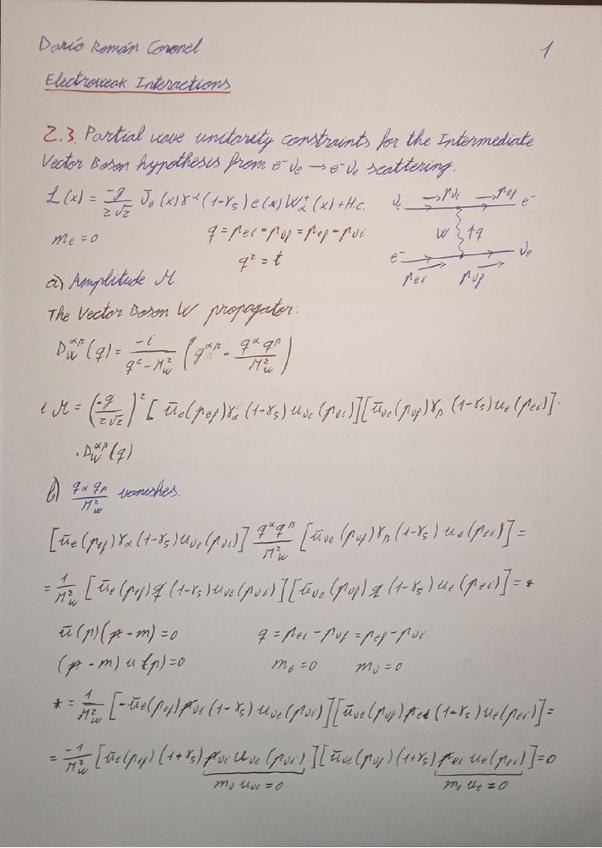 Darío Román Coronel
1
Electroweak Interactions
2.3. Partial wave unitarity constraints for the Intermediate
Vector Boson hypothesis from e⁻ν_e → e⁻ν_e scattering.
L(x) = -g/(2√2) ν̄_e(x)γ^α(1-γ₅)e(x)W_α^+(x) + Hc.
m_e = 0 q = p_ei - p_νf = p_ef - p_νi
q² = t
ν_e p_νi p_ef e⁻
W ↑q
e⁻ p_ei p_νf ν_e
a) Amplitude M
The Vector Boson W propagator:
D_W^{αβ}(q) = -i/(q² - M_W²) (g^{αβ} - q^α q^β/M_W²)
i M = (-g/(2√2))² [ū_e(p_ef)γ_α(1-γ₅)u_νe(p_νi)][ū_νe(p_νf)γ_β(1-γ₅)u_e(p_ei)]·
· D_W^{αβ}(q)
b) q_α q_β/M_W² vanishes.
[ū_e(p_ef)γ_α(1-γ₅)u_νe(p_νi)] q^α q^β/M_W² [ū_νe(p_νf)γ_β(1-γ₅)u_e(p_ei)] =
= 1/M_W² [ū_e(p_ef)q̸(1-γ₅)u_νe(p_νi)][ū_νe(p_νf)q̸(1-γ₅)u_e(p_ei)] = *
ū(p)(p̸ - m) = 0 q = p_ei - p_νf = p_ef - p_νi
(p̸ - m)u(p) = 0 m_e = 0 m_ν = 0
* = 1/M_W² [-ū_e(p_ef)p̸_νi(1-γ₅)u_νe(p_νi)][ū_νe(p_νf)p̸_ei(1-γ₅)u_e(p_ei)] =
= -1/M_W² [ū_e(p_ef)(1+γ₅)p̸_νi u_νe(p_νi)][ū_νe(p_νf)(1+γ₅)p̸_ei u_e(p_ei)] = 0
m_ν u_νe = 0 m_e u_e = 0